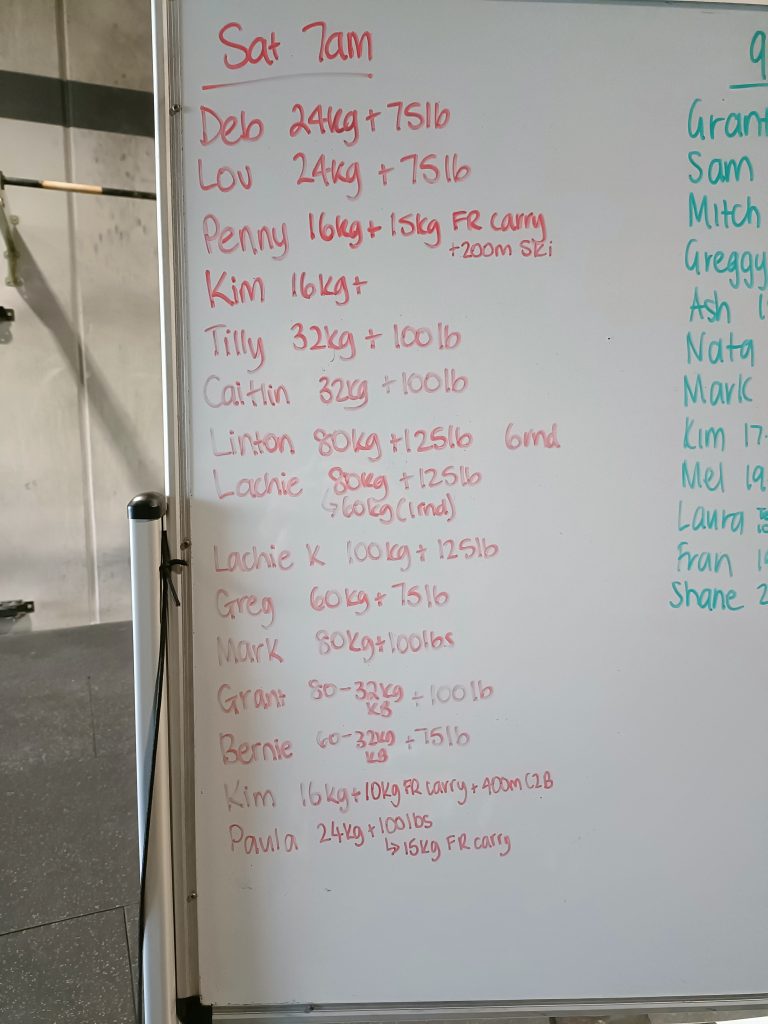 Sat 7am
Deb 24kg + 75lb
Lou 24kg + 75lb
Penny 16kg + 15kg FR carry
+200m Ski
Kim 16kg+
Tilly 32kg + 100lb
Caitlin 32kg + 100lb
Linton 80kg + 125lb 6rnd
Lachie 80kg + 125lb
↳60kg (1rnd)
Lachie K 100kg + 125lb
Greg 60kg + 75lb
Mark 80kg + 100lbs
Grant 80-32kg + 100lb
KB
Bernie 60-32kg + 75lb
KB
Kim 16kg + 10kg FR carry + 400m C2B
Paula 24kg + 100lbs
↳ 15kg FR carry
9
Grant
Sam
Mitch
Greggy
Ash 1
Nata
Mark
Kim 17
Mel 19
Laura
Fran 1
Shane 2